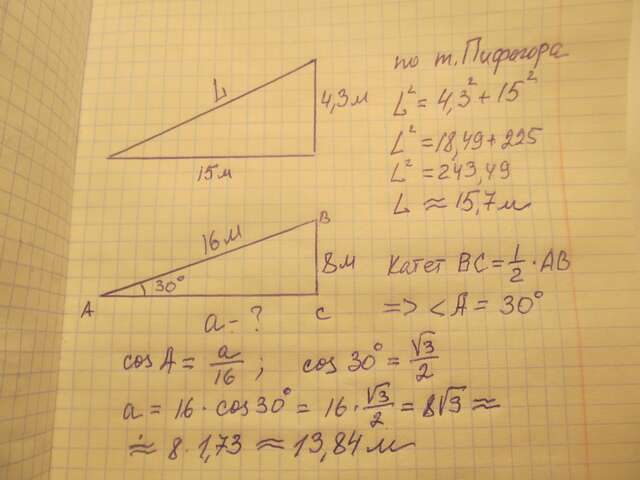 L
4,3м
15м
по т. Пифагора
L² = 4,3² + 15²
L² = 18,49 + 225
L² = 243,49
L ≈ 15,7м
16м
B
8м
30°
A
C
a - ?
Катет BC = 1/2 · AB
=> <A = 30°
cos A = a/16 ; cos 30° = √3/2
a = 16 · cos 30° = 16 · √3/2 = 8√3 ≈
≈ 8 · 1,73 ≈ 13,84 м